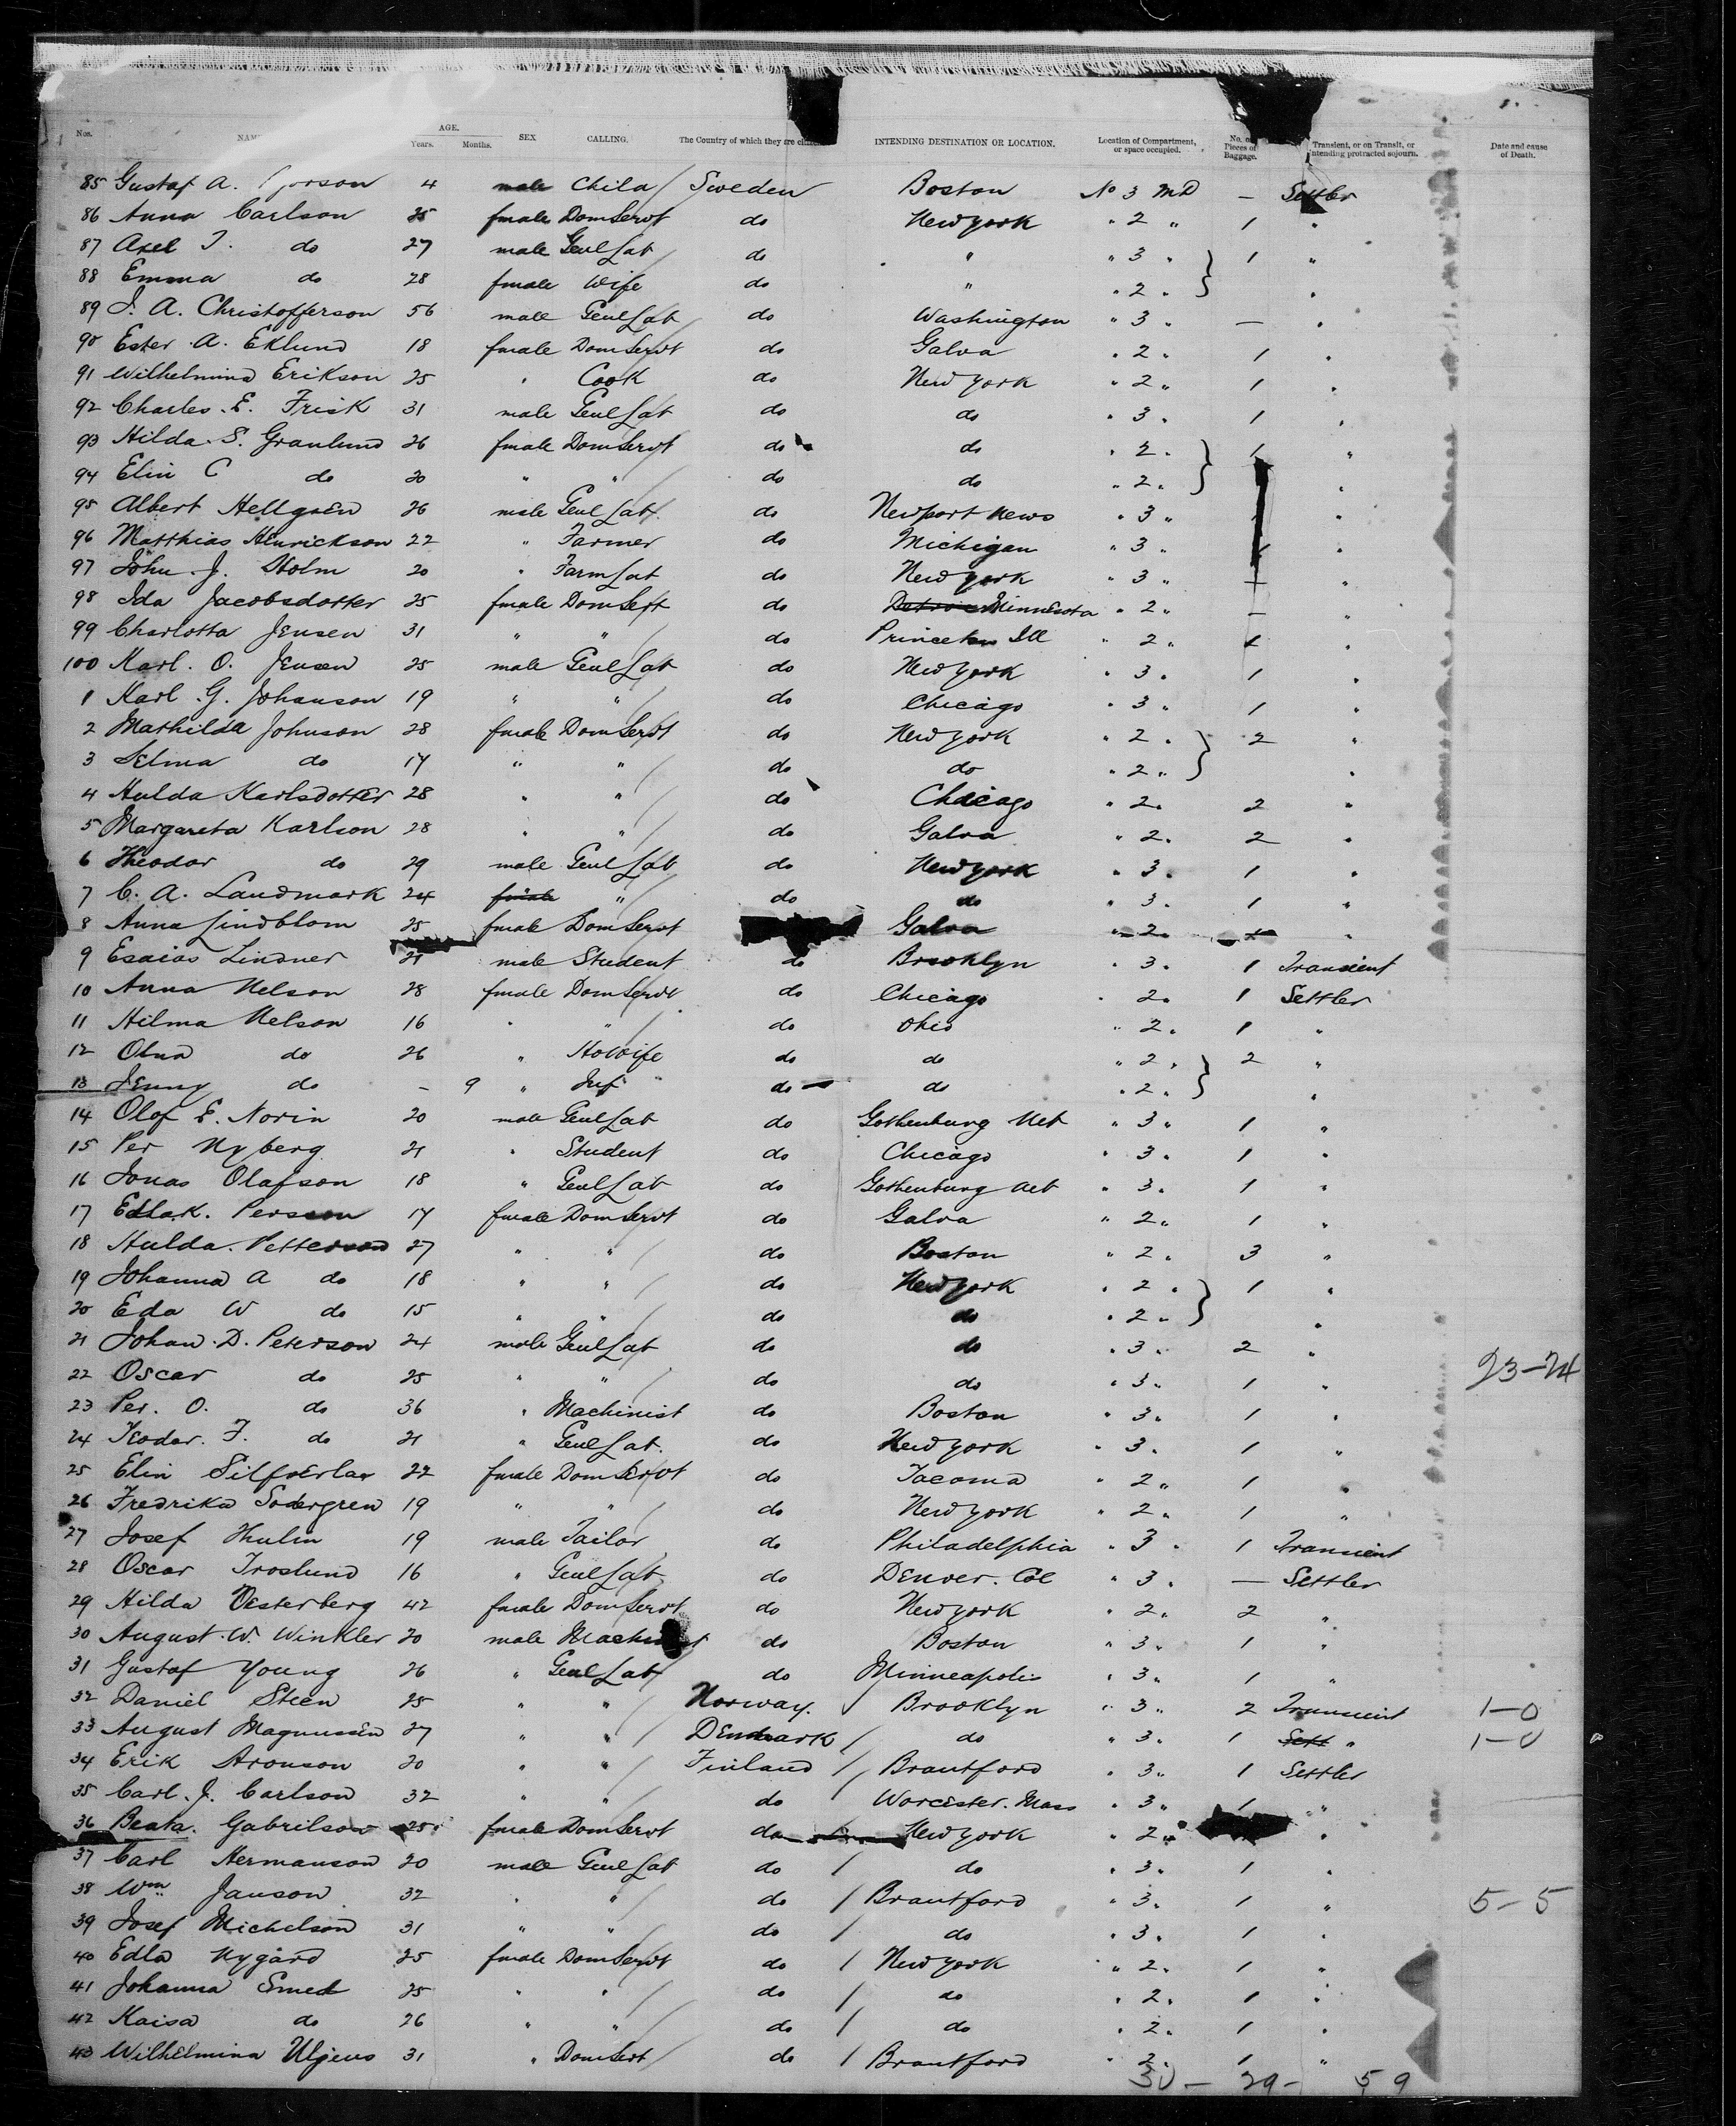 Nos. NAM AGE. Years. Months. SEX CALLING. The Country of which they are citiz INTENDING DESTINATION OR LOCATION. Location of Compartment, or space occupied. No. of Pieces of Baggage. Transient, or on Transit, or intending protracted sojourn. Date and cause of Death.
85 Gustaf A. 4 male Child / Sweden Boston No 3 MD — Settler
86 Anna Carlson 25 fmale Dom Servt do New york " 2 " 1 "
87 Axel T. do 27 male Genl Lab do " " 3 " 1 "
88 Emma do 28 fmale Wife do " " 2 " "
89 J. A. Christofferson 56 male Genl Lab do Washington " 3 " — "
90 Ester A. Eklund 18 fmale Dom Servt do Galva " 2 " 1 "
91 Wilhelmina Erikson 25 " Cook do New york " 2 " 1 "
92 Charles E. Frisk 31 male Genl Lab do do " 3 " 1 "
93 Hilda S. Granlund 26 fmale Dom Servt do do " 2 " 1 "
94 Elin C do 20 " " do do " 2 " "
95 Albert Hellgren 26 male Genl Lab do Newport News " 3 " "
96 Matthias Henrickson 22 " Farmer do Michigan " 3 " "
97 John J. Holm 20 " Farm Lab do New york " 3 " "
98 Ida Jacobsdotter 25 fmale Dom Sert do Minnesota " 2 " — "
99 Charlotta Jensen 31 " " do Princeton Ill " 2 " "
100 Karl O. Jensen 25 male Genl Lab do New york " 3 " 1 "
1 Karl G. Johanson 19 " " do Chicago " 3 " 1 "
2 Mathilda Johnson 28 fmale Dom Servt do New york " 2 " 2 "
3 Selma do 17 " " do do " 2 " "
4 Hulda Karlsdotter 28 " " do Chicago " 2 " 2 "
5 Margareta Karlson 28 " " do Galva " 2 " 2 "
6 Theodor do 29 male Genl Lab do New york " 3 " 1 "
7 C. A. Landmark 24 fmale " do do " 3 " 1 "
8 Anna Lindblom 25 fmale Dom Servt Galva " 2 " "
9 Esaias Lindner 21 male Student do Brooklyn " 3 " 1 Transient
10 Anna Nelson 28 fmale Dom Servt do Chicago " 2 " 1 Settler
11 Hilma Nelson 16 " " do Ohio " 2 " 1 "
12 do 26 " Ho Wife do do " 2 " 2 "
13 Jenny do — 9 " Inf do do " 2 " "
14 Olof E. Norin 20 male Genl Lab do Gothenburg Neb " 3 " 1 "
15 Per Nyberg 21 " Student do Chicago " 3 " 1 "
16 Jonas Olafson 18 " Genl Lab do Gothenburg " 3 " 1 "
17 Edla K. Persson 17 fmale Dom Servt do Galva " 2 " 1 "
18 Hulda Petterson 27 " " do Boston " 2 " 3 "
19 Johanna A do 18 " " do New york " 2 " 1 "
20 Eda W do 15 " " do do " 2 " "
21 Johan D. Peterson 24 male Genl Lab do do " 3 " 2 "
22 Oscar do 25 " " do do " 3 " 1 " 23-24
23 Per. O. do 36 " Machinist do Boston " 3 " 1 "
24 Teodor. F. do 21 " Genl Lab do New york " 3 " 1 "
25 Elin 22 fmale Dom Servt do Tacoma " 2 " 1 "
26 Fredrika Sodergren 19 " " do New york " 2 " 1 "
27 Josef Thulin 19 male Tailor do Philadelphia " 3 " 1 Transient
28 Oscar Troslund 16 " Genl Lab do Denver. Col " 3 " — Settler
29 Hilda Vesterberg 42 fmale Dom Servt do New york " 2 " 2 "
30 August W. Winkler 20 male Machinist do Boston " 3 " 1 "
31 Gustaf Young 26 " Genl Lab do Minneapolis " 3 " 1 "
32 Daniel Steen 25 " " Norway. Brooklyn " 3 " 2 Transient 1-0
33 August Magnussen 27 " " Denmark do " 3 " 1 Sett " 1-0
34 Erik Aronson 20 " " Finland Brantford " 3 " 1 Settler
35 Carl. J. Carlson 32 " " do Worcester. Mass " 3 " 1 "
36 Beata Gabrilson 25 fmale Dom Servt do New york " 2 " "
37 Carl Hermanson 20 male Genl Lab do do " 3 " 1 "
38 Wm Janson 32 " " do Brantford " 3 " 1 " 5-5
39 Josef Michelson 31 " " do do " 3 " 1 "
40 Edla Nygård 25 fmale Dom Servt do New york " 2 " 1 "
41 Johanna Smed 25 " " do do " 2 " 1 "
42 Kaisa do 26 " " do do " 2 " 1 "
43 Wilhelmina Uljens 31 " Dom Sert do Brantford " 2 " 1 "
30 — 29 — 59